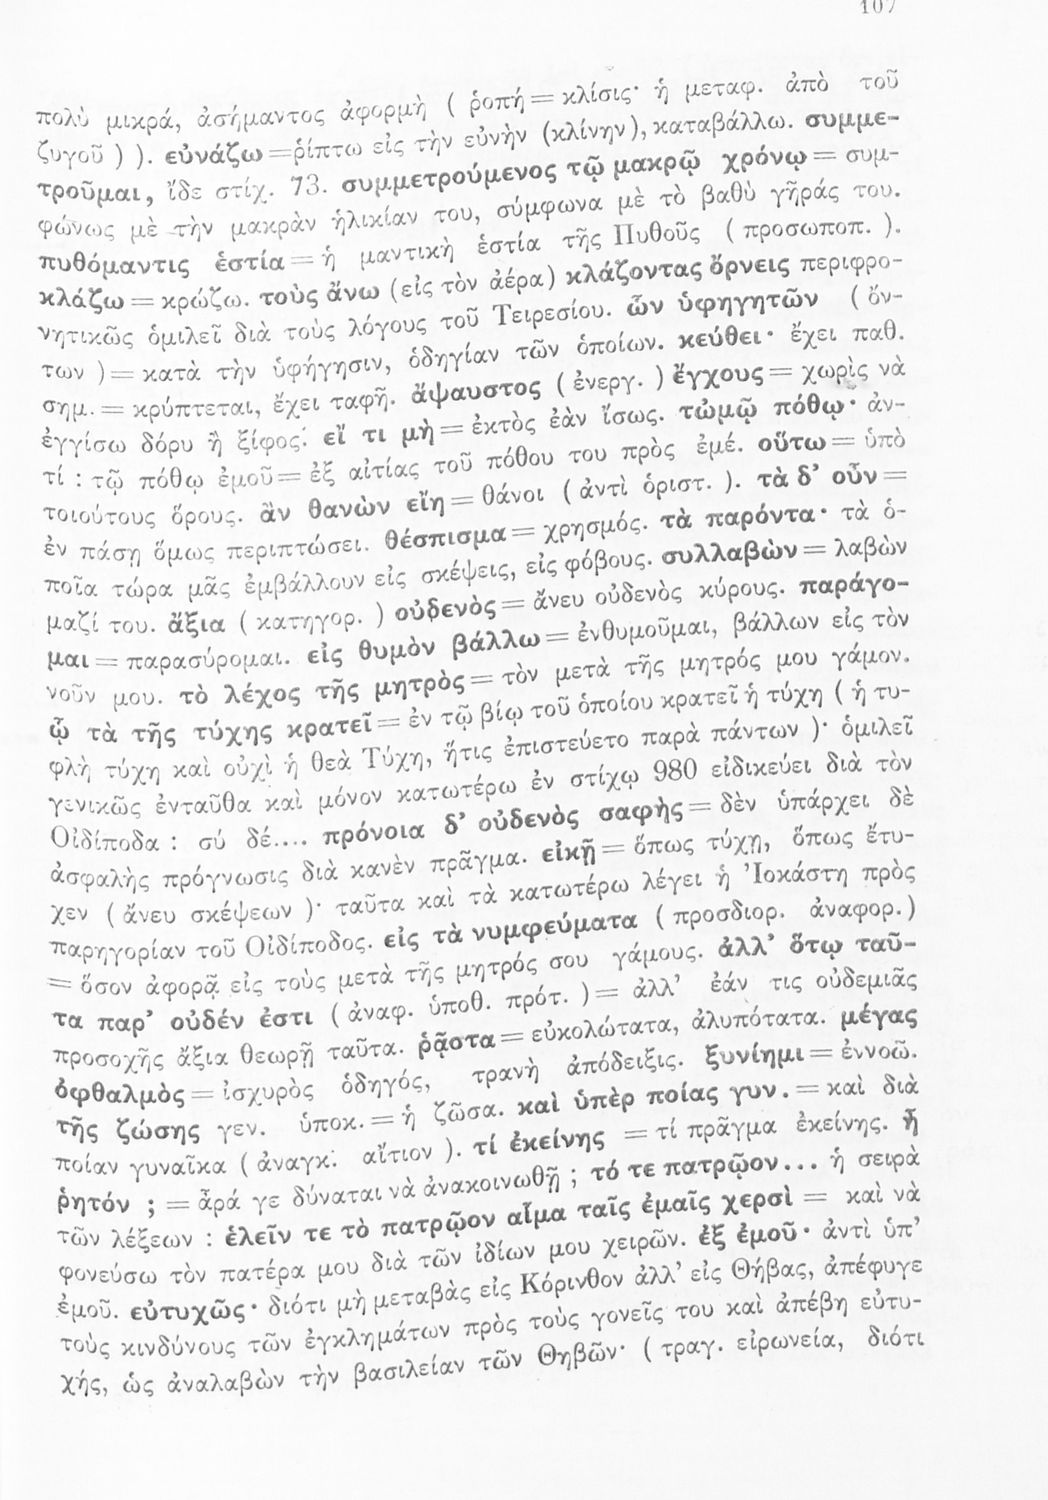 107
πολὺ μικρά, ἀσήμαντος ἀφορμὴ ( ῥοπή = κλίσις· ἡ μεταφ. ἀπὸ τοῦ
ζυγοῦ ) ). εὐνάζω = ρίπτω εἰς τὴν εὐνὴν (κλίνην), καταβάλλω. συμμε-
τροῦμαι, ἴδε στίχ. 73. συμμετρούμενος τῷ μακρῷ χρόνῳ = συμ-
φώνως μὲ τὴν μακρὰν ἡλικίαν του, σύμφωνα μὲ τὸ βαθὺ γῆράς του.
πυθόμαντις ἑστία = ἡ μαντικὴ ἑστία τῆς Πυθοῦς ( προσωποπ. ).
κλάζω = κρώζω. τοὺς ἄνω (εἰς τὸν ἀέρα) κλάζοντας ὄρνεις περιφρο-
νητικῶς ὁμιλεῖ διὰ τοὺς λόγους τοῦ Τειρεσίου. ὧν ὑφηγητῶν ( ὄν-
των ) = κατὰ τὴν ὑφήγησιν, ὁδηγίαν τῶν ὁποίων. κεύθει· ἔχει παθ.
σημ. = κρύπτεται, ἔχει ταφῆ. ἄψαυστος ( ἐνεργ. ) ἔγχους = χωρὶς νὰ
ἐγγίσω δόρυ ἢ ξίφος. εἴ τι μὴ = ἐκτὸς ἐὰν ἴσως. τὠμῷ πόθῳ· ἀν-
τί : τῷ πόθῳ ἐμοῦ = ἐξ αἰτίας τοῦ πόθου του πρὸς ἐμέ. οὕτω = ὑπὸ
τοιούτους ὅρους. ἂν θανὼν εἴη = θάνοι ( ἀντὶ ὁριστ. ). τὰ δ' οὖν =
ἐν πάσῃ ὅμως περιπτώσει. θέσπισμα = χρησμός. τὰ παρόντα· τὰ ὁ-
ποῖα τώρα μᾶς ἐμβάλλουν εἰς σκέψεις, εἰς φόβους. συλλαβὼν = λαβὼν
μαζί του. ἄξια ( κατηγορ. ) οὐδενὸς = ἄνευ οὐδενὸς κύρους. παράγο-
μαι = παρασύρομαι. εἰς θυμὸν βάλλω = ἐνθυμοῦμαι, βάλλων εἰς τὸν
νοῦν μου. τὸ λέχος τῆς μητρὸς = τὸν μετὰ τῆς μητρός μου γάμον.
ᾧ τὰ τῆς τύχης κρατεῖ = ἐν τῷ βίῳ τοῦ ὁποίου κρατεῖ ἡ τύχη ( ἡ τυ-
φλὴ τύχη καὶ οὐχὶ ἡ θεὰ Τύχη, ἥτις ἐπιστεύετο παρὰ πάντων )· ὁμιλεῖ
γενικῶς ἐνταῦθα καὶ μόνον κατωτέρω ἐν στίχῳ 980 εἰδικεύει διὰ τὸν
Οἰδίποδα : σύ δέ.... πρόνοια δ' οὐδενὸς σαφὴς = δὲν ὑπάρχει δὲ
ἀσφαλὴς πρόγνωσις διὰ κανὲν πρᾶγμα. εἰκῇ = ὅπως τύχῃ, ὅπως ἔτυ-
χεν ( ἄνευ σκέψεων )· ταῦτα καὶ τὰ κατωτέρω λέγει ἡ Ἰοκάστη πρὸς
παρηγορίαν τοῦ Οἰδίποδος. εἰς τὰ νυμφεύματα ( προσδιορ. ἀναφορ.)
= ὅσον ἀφορᾷ εἰς τοὺς μετὰ τῆς μητρός σου γάμους. ἀλλ' ὅτῳ ταῦ-
τα παρ' οὐδέν ἐστι ( ἀναφ. ὑποθ. πρότ. ) = ἀλλ' ἐάν τις οὐδεμιᾶς
προσοχῆς ἄξια θεωρῇ ταῦτα. ῥᾷστα = εὐκολώτατα, ἀλυπότατα. μέγας
ὀφθαλμὸς = ἰσχυρὸς ὁδηγός, τρανὴ ἀπόδειξις. ξυνίημι = ἐννοῶ.
τῆς ζώσης γεν. ὑποκ. = ἡ ζῶσα. καὶ ὑπὲρ ποίας γυν. = καὶ διὰ
ποίαν γυναῖκα ( ἀναγκ. αἴτιον ). τί ἐκείνης = τί πρᾶγμα ἐκείνης. ἦ
ῥητόν ; = ἆρά γε δύναται νὰ ἀνακοινωθῇ ; τό τε πατρῷον... ἡ σειρὰ
τῶν λέξεων : ἑλεῖν τε τὸ πατρῷον αἷμα ταῖς ἐμαῖς χερσὶ = καὶ νὰ
φονεύσω τὸν πατέρα μου διὰ τῶν ἰδίων μου χειρῶν. ἐξ ἐμοῦ· ἀντὶ ὑπ'
ἐμοῦ. εὐτυχῶς· διότι μὴ μεταβὰς εἰς Κόρινθον ἀλλ' εἰς Θήβας, ἀπέφυγε
τοὺς κινδύνους τῶν ἐγκλημάτων πρὸς τοὺς γονεῖς του καὶ ἀπέβη εὐτυ-
χής, ὡς ἀναλαβὼν τὴν βασιλείαν τῶν Θηβῶν· ( τραγ. εἰρωνεία, διότι